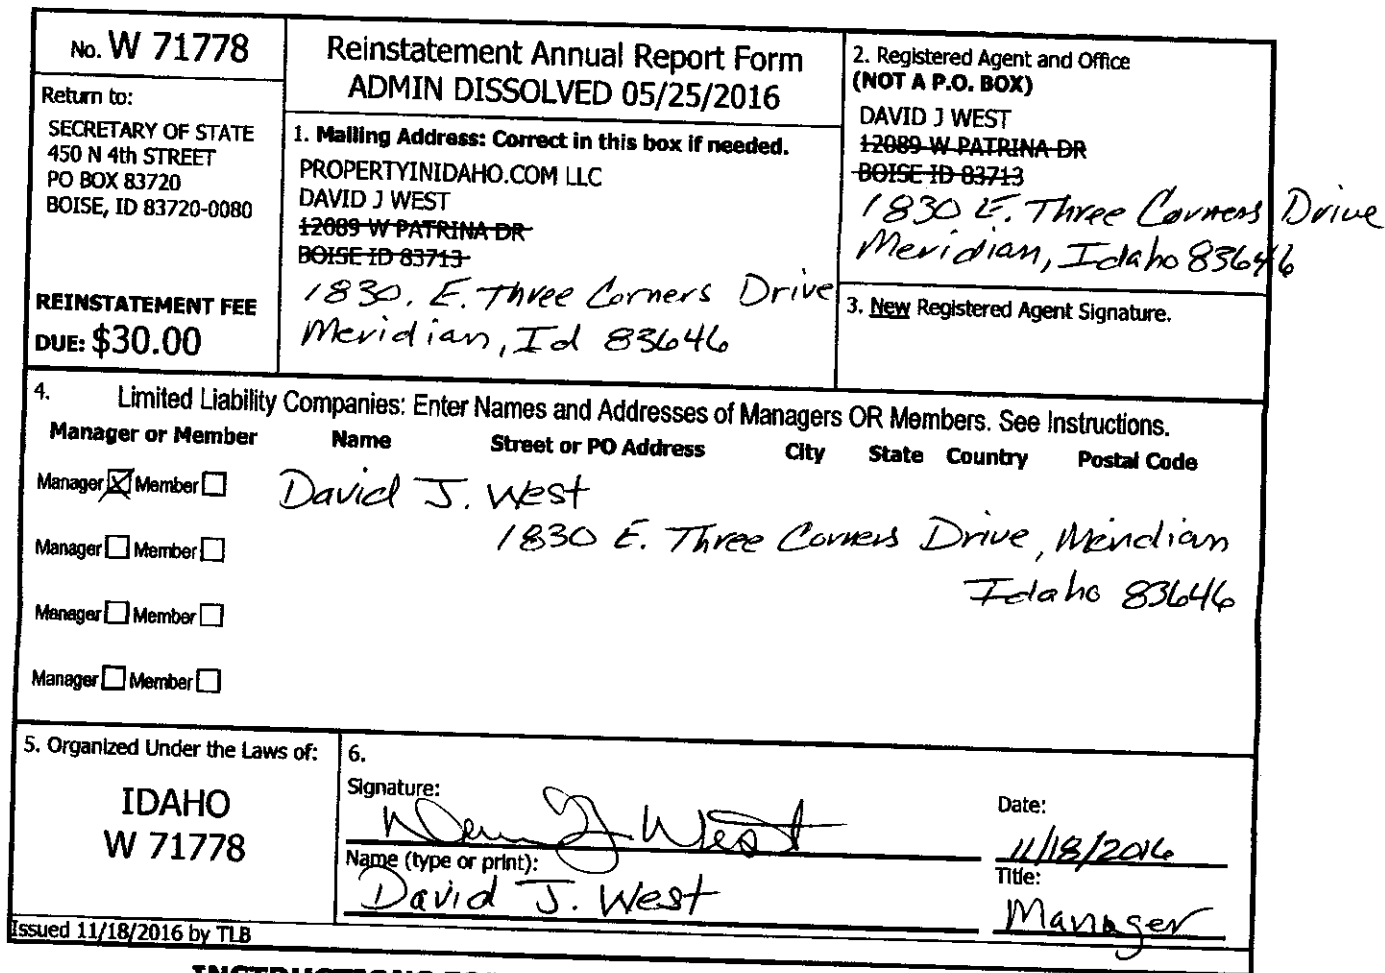 No. W 71778
Return to:
SECRETARY OF STATE
450 N 4th STREET
PO BOX 83720
BOISE, ID 83720-0080
REINSTATEMENT FEE
DUE: $30.00
Reinstatement Annual Report Form
ADMIN DISSOLVED 05/25/2016
1. Mailing Address: Correct in this box if needed.
PROPERTYINIDAHO.COM LLC
DAVID J WEST
12089 W PATRINA DR
BOISE ID 83713
1830. E. Three Corners Drive
Meridian, Id 83646
2. Registered Agent and Office
(NOT A P.O. BOX)
DAVID J WEST
12089 W PATRINA DR
BOISE ID 83713
1830 E. Three Corners Drive
Meridian, Idaho 83646
3. New Registered Agent Signature.
4. Limited Liability Companies: Enter Names and Addresses of Managers OR Members. See Instructions.
Manager or Member Name Street or PO Address City State Country Postal Code
Manager Member David J. West
1830 E. Three Corners Drive, Meridian
Manager Member
Idaho 83646
Manager Member
Manager Member
5. Organized Under the Laws of:
IDAHO
W 71778
6.
Signature:
West
Date:
11/18/2016
Name (type or print):
David J. West
Title:
Manager
Issued 11/18/2016 by TLB